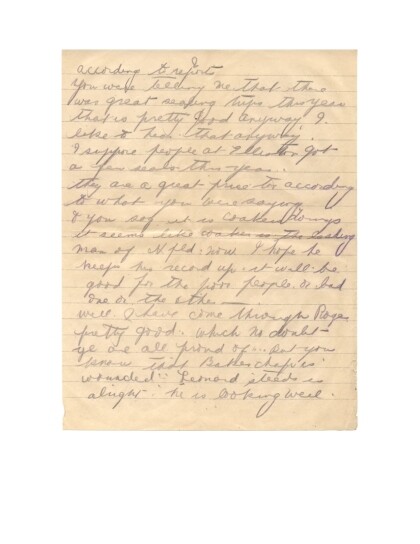 according to reports
You were telling me that there
was great sealing trips this year
that is pretty good anyway I
like to hear that anyway.
I suppose people at Elliston got
a few seals this year.
they are a great price too according
to what you were saying
& you say it is Coaker doings
it seems like Coaker is the leading
man of Nfld. now I hope he
keep his record up it will be
good for the poor people or bad
one or the other —
well I have come through
pretty good. which no doubt
ye are all proud of ... but you
know that Baker chafe is
wounded. Leonard Steeds is
alright. he is looking well.